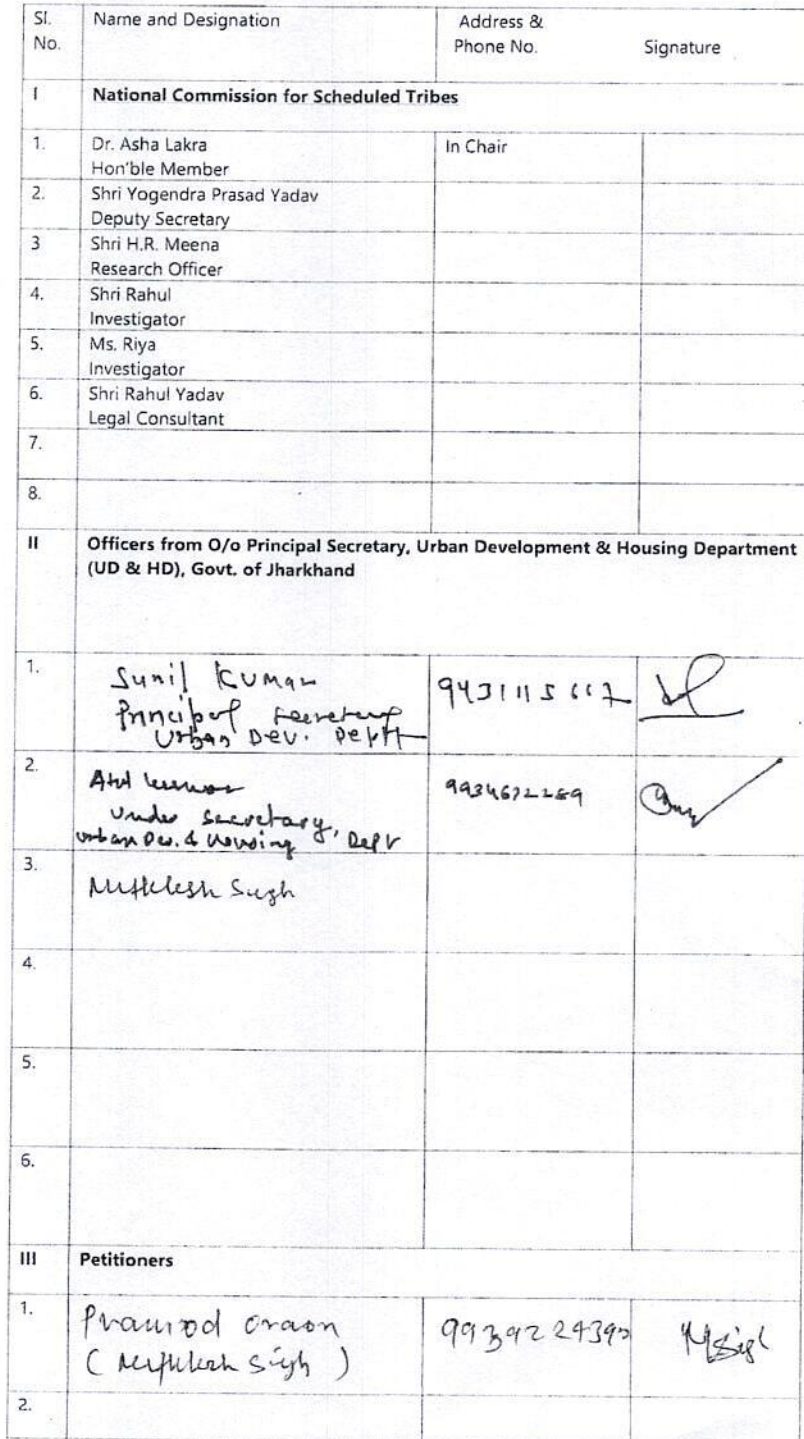 Sl. Name and Designation Address &
No. Phone No. Signature
I National Commission for Scheduled Tribes
1. Dr. Asha Lakra In Chair
Hon'ble Member
2. Shri Yogendra Prasad Yadav
Deputy Secretary
3 Shri H.R. Meena
Research Officer
4. Shri Rahul
Investigator
5. Ms. Riya
Investigator
6. Shri Rahul Yadav
Legal Consultant
7.
8.
II Officers from O/o Principal Secretary, Urban Development & Housing Department
(UD & HD), Govt. of Jharkhand
1. Sunil Kumar 9431115617
Principal Secretary
Urban Dev. Deptt
2. Atul Kumar
Under Secretary,
Urban Dev. & Housing Dept
3. Mithilesh Singh
4.
5.
6.
III Petitioners
1. Pramod Oraon
(Mithilesh Singh)
2.